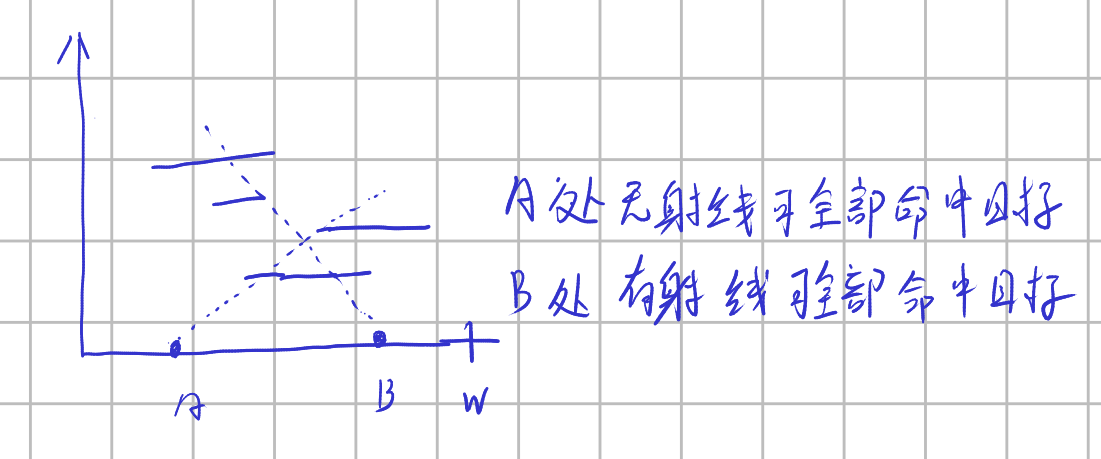 A处无射线可全部命中目标
B处有射线可全部命中目标
A B W